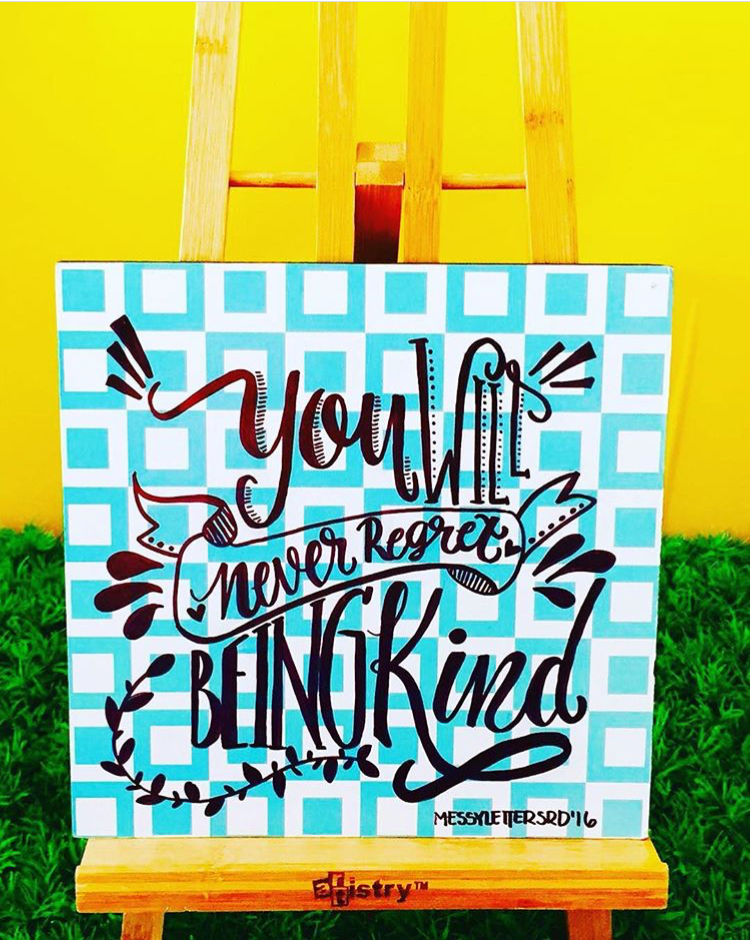 you WILL
never Regret
BEING Kind
MESSYLETTERSRD'16
Artistry™